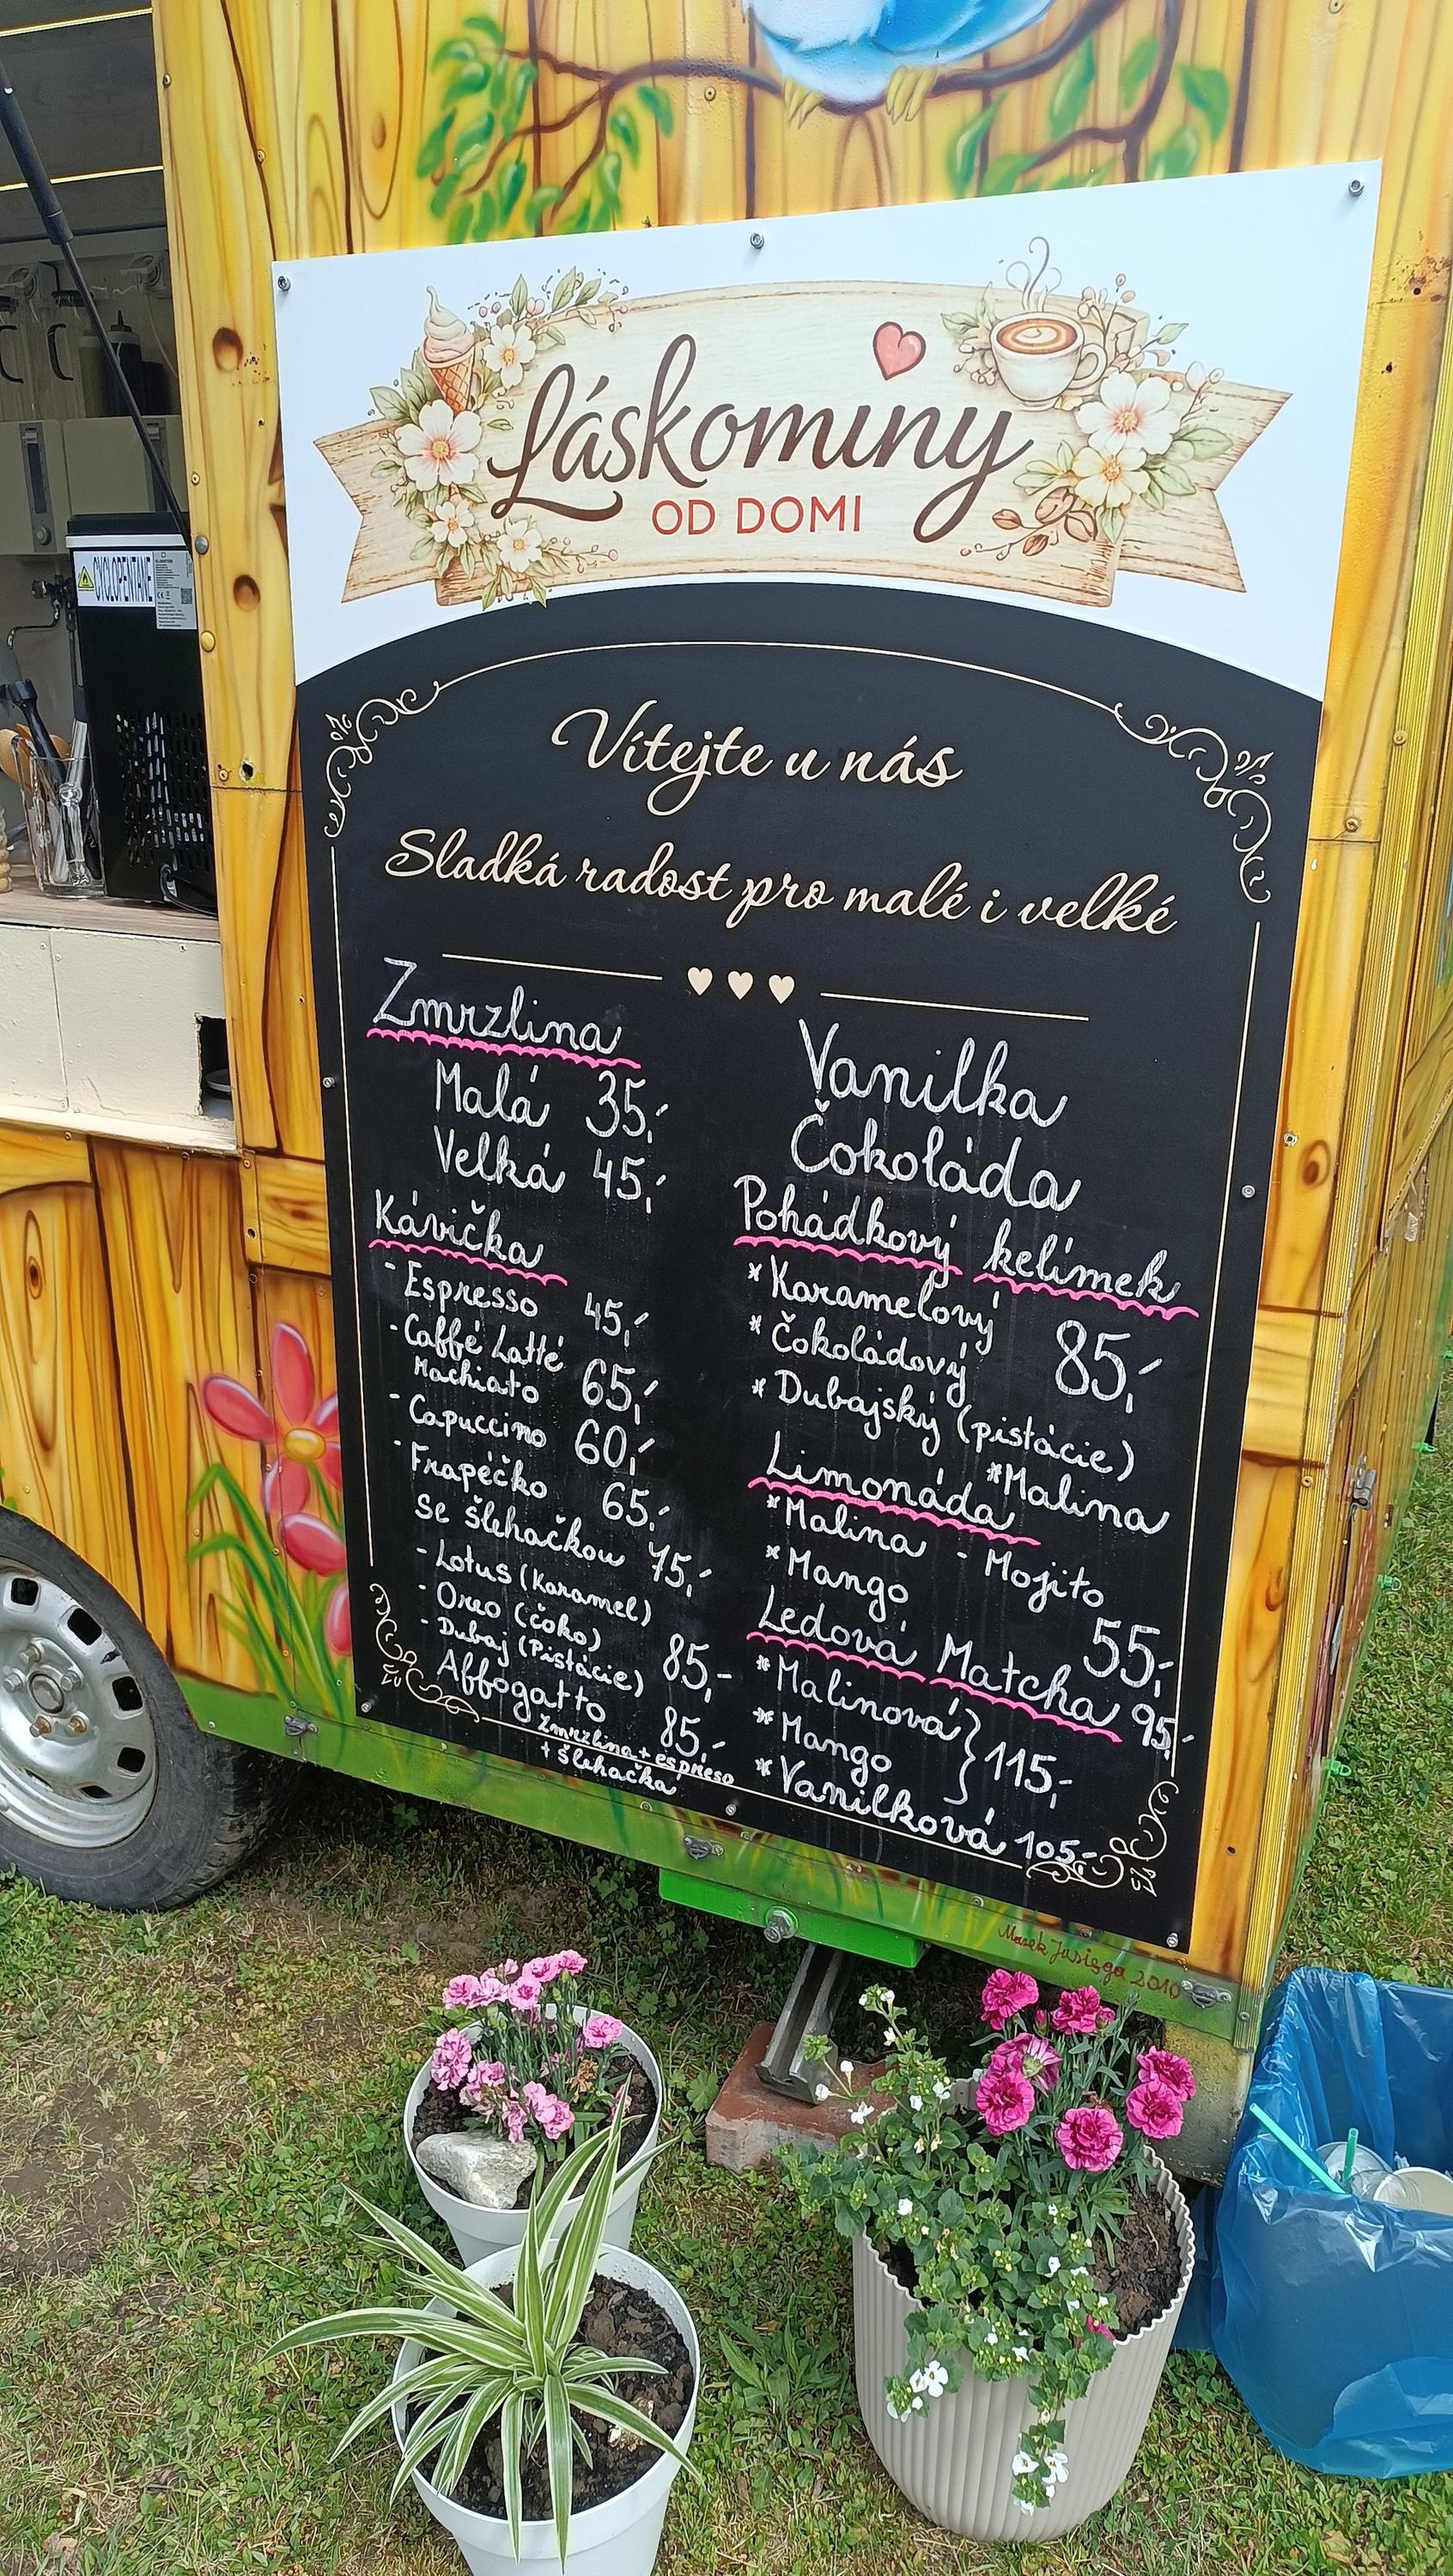 CYCLOPENTANE
Láskominy
OD DOMI
Vítejte u nás
Sladká radost pro malé i velké
Zmrzlina
Malá 35,-
Velká 45,-
Kávička
- Espresso 45,-
- Caffé Latté
Machiato 65,-
- Capuccino 60,-
- Frapéčko 65,-
se šlehačkou 75,-
- Lotus (Karamel)
- Oreo (čoko)
- Dubaj (Pistácie) 85,-
Affogatto 85,-
Zmrzlina + espreso
+ šlehačka
Vanilka
Čokoláda
Pohádkový kelímek
* Karamelový
* Čokoládový 85,-
* Dubajský (pistácie)
*Malina
Limonáda
* Malina - Mojito
* Mango 55,-
Ledová Matcha 95,-
* Malinová
* Mango } 115,-
* Vanilková 105,-
Marek Jusięga 2010